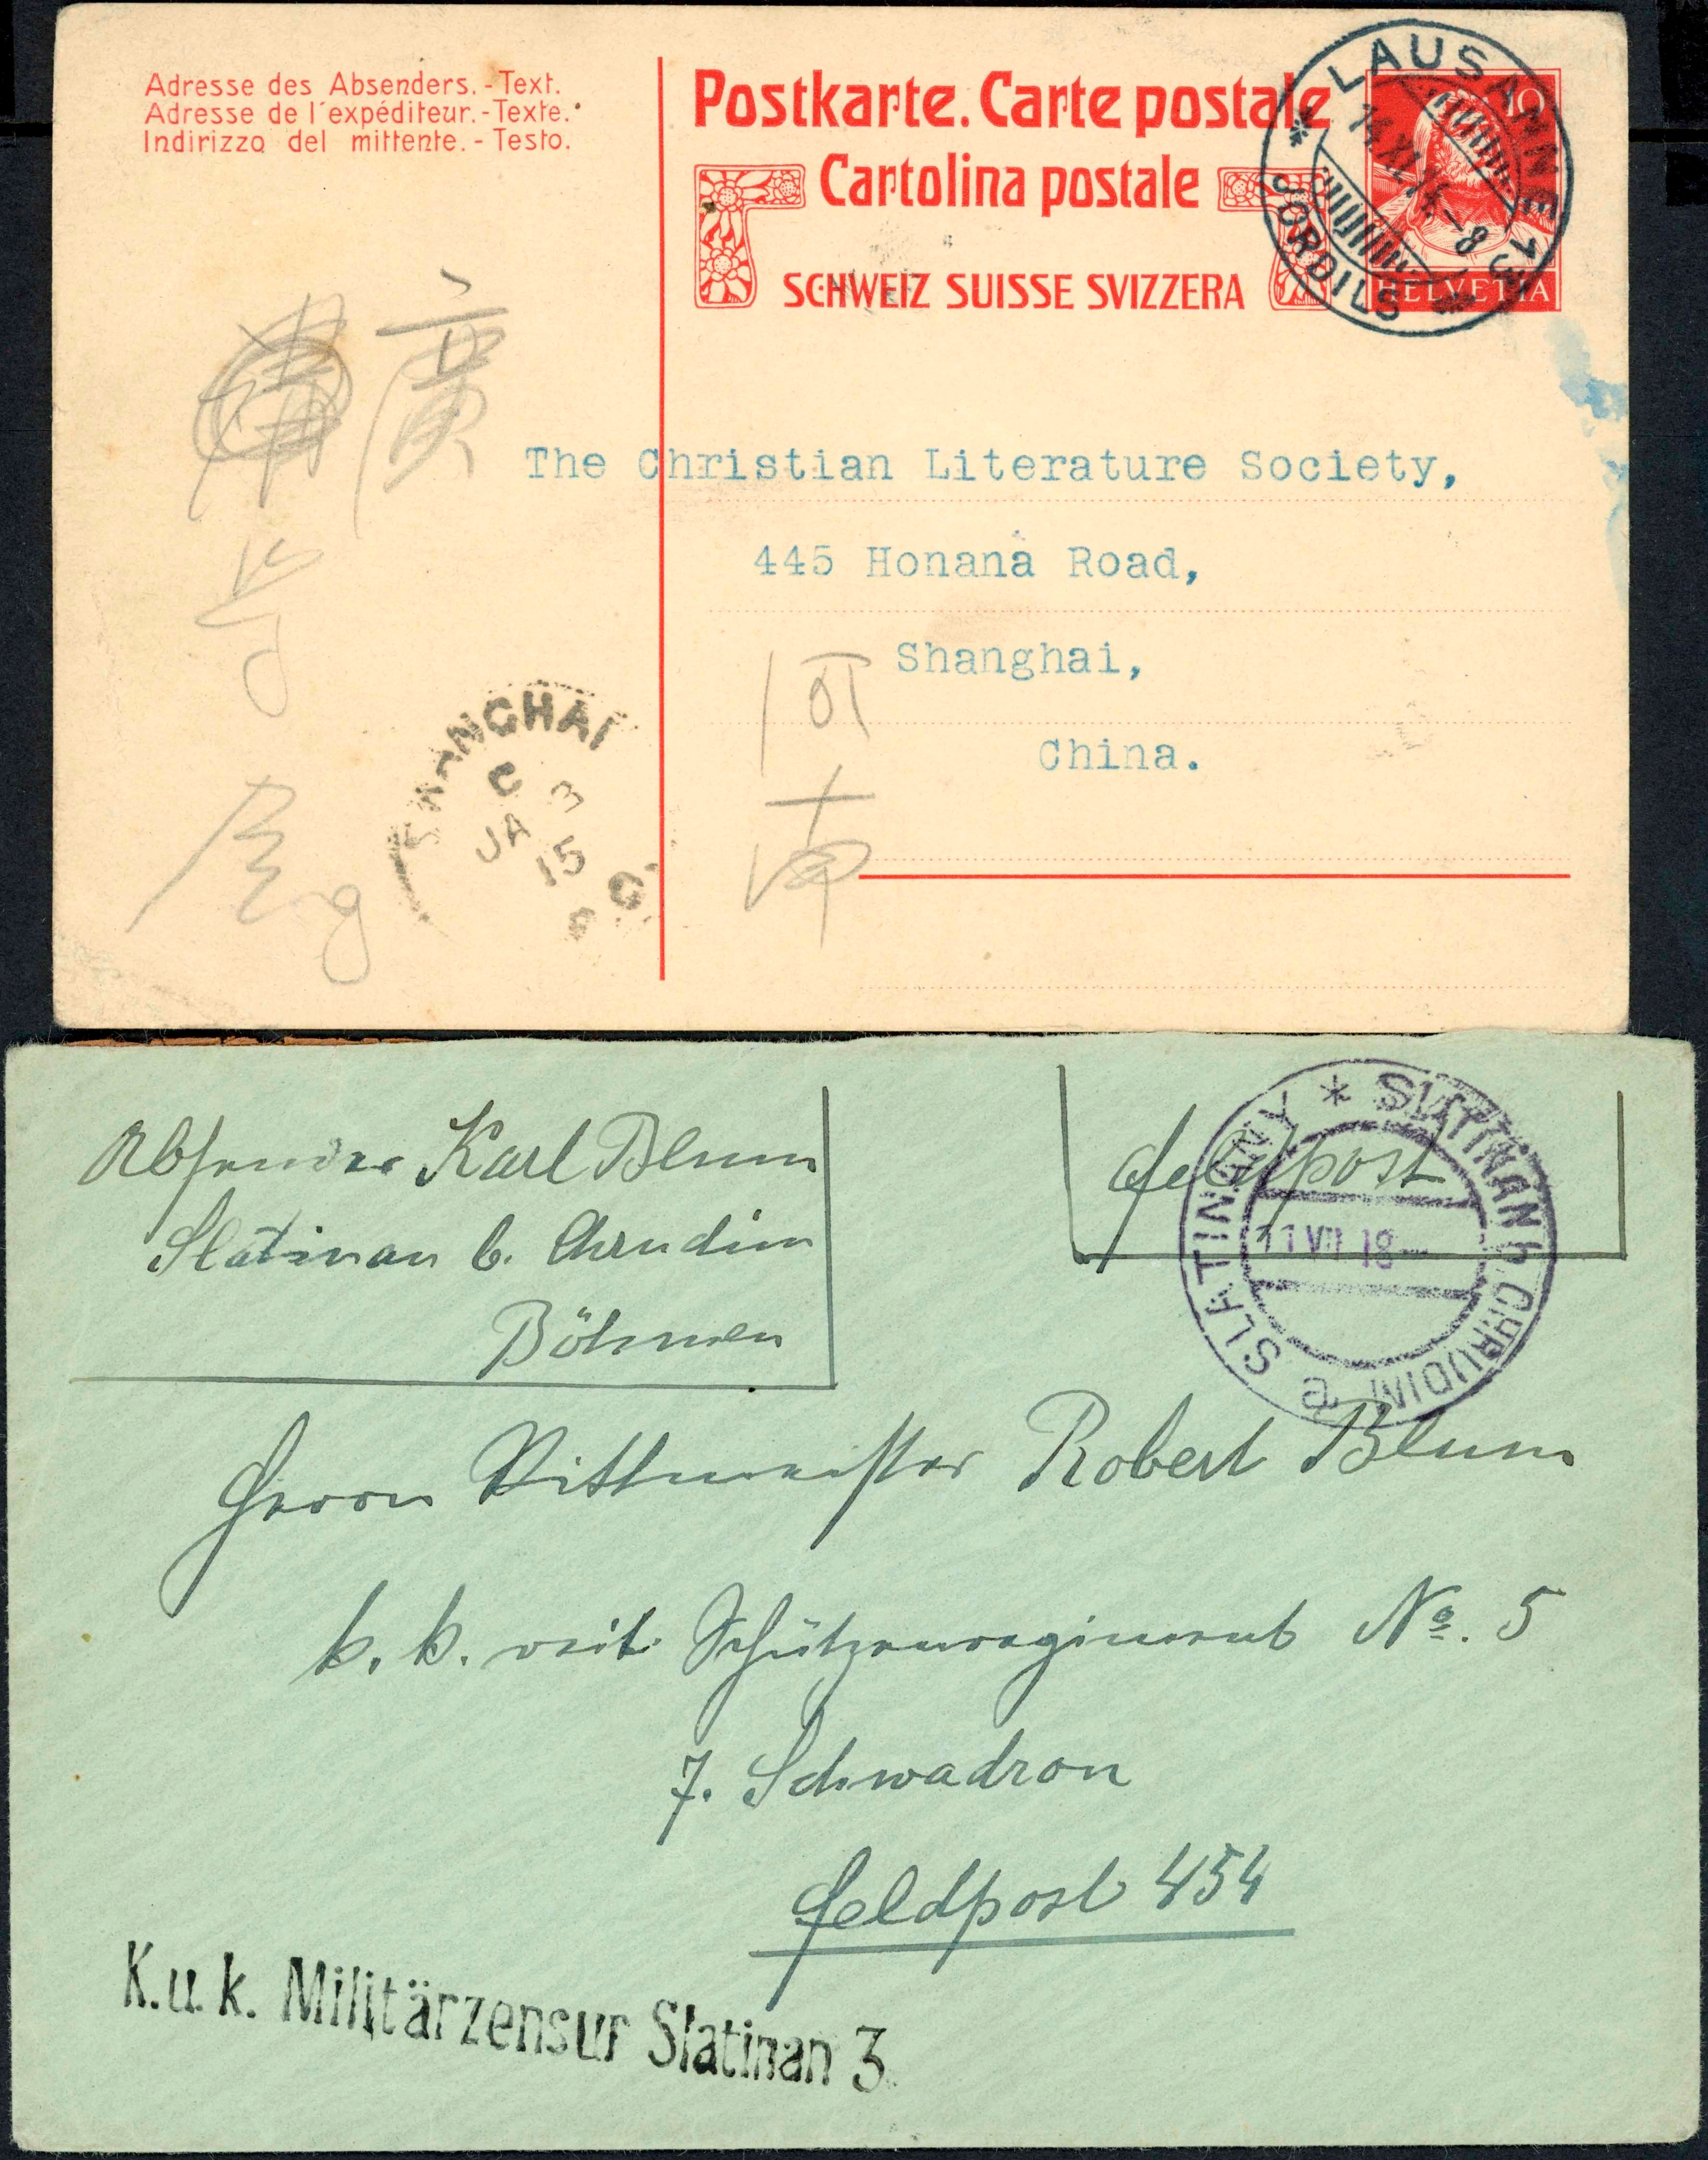 Adresse des Absenders.-Text.
Adresse de l'expéditeur.-Texte.
Indirizzo del mittente.-Testo.
Postkarte. Carte postale
Cartolina postale
SCHWEIZ SUISSE SVIZZERA
LAUSANNE 13
JORDILS
10
HELVETIA
廣
The Christian Literature Society,
445 Honana Road,
Shanghai,
China.
河
南
SHANGHAI
C
JA 3
15
Absender Karl Blum
Slatinan b. Chrudim
Böhmen
Feldpost
SLATINAN b CHRUDIM
SLATINANY
11 VII 18
e
Herrn Rittmeister Robert Blum
k. k. reit. Schützenregiment No. 5
7. Schwadron
Feldpost 454
K.u.k. Militärzensur Slatinan 3.